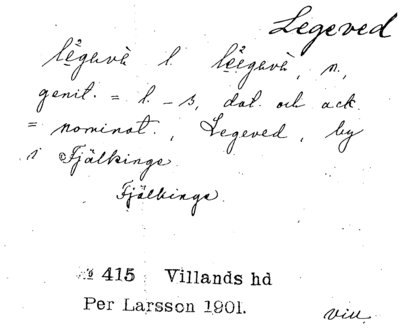 Legeved
lègavè l. lèegavè, n,
genit. = l. - s, dat. och ack.
= nominat., Legeved, by
i Fjälkinge
Fjälkinge.
№ 415 Villands hd
Per Larsson 1901.
vill.